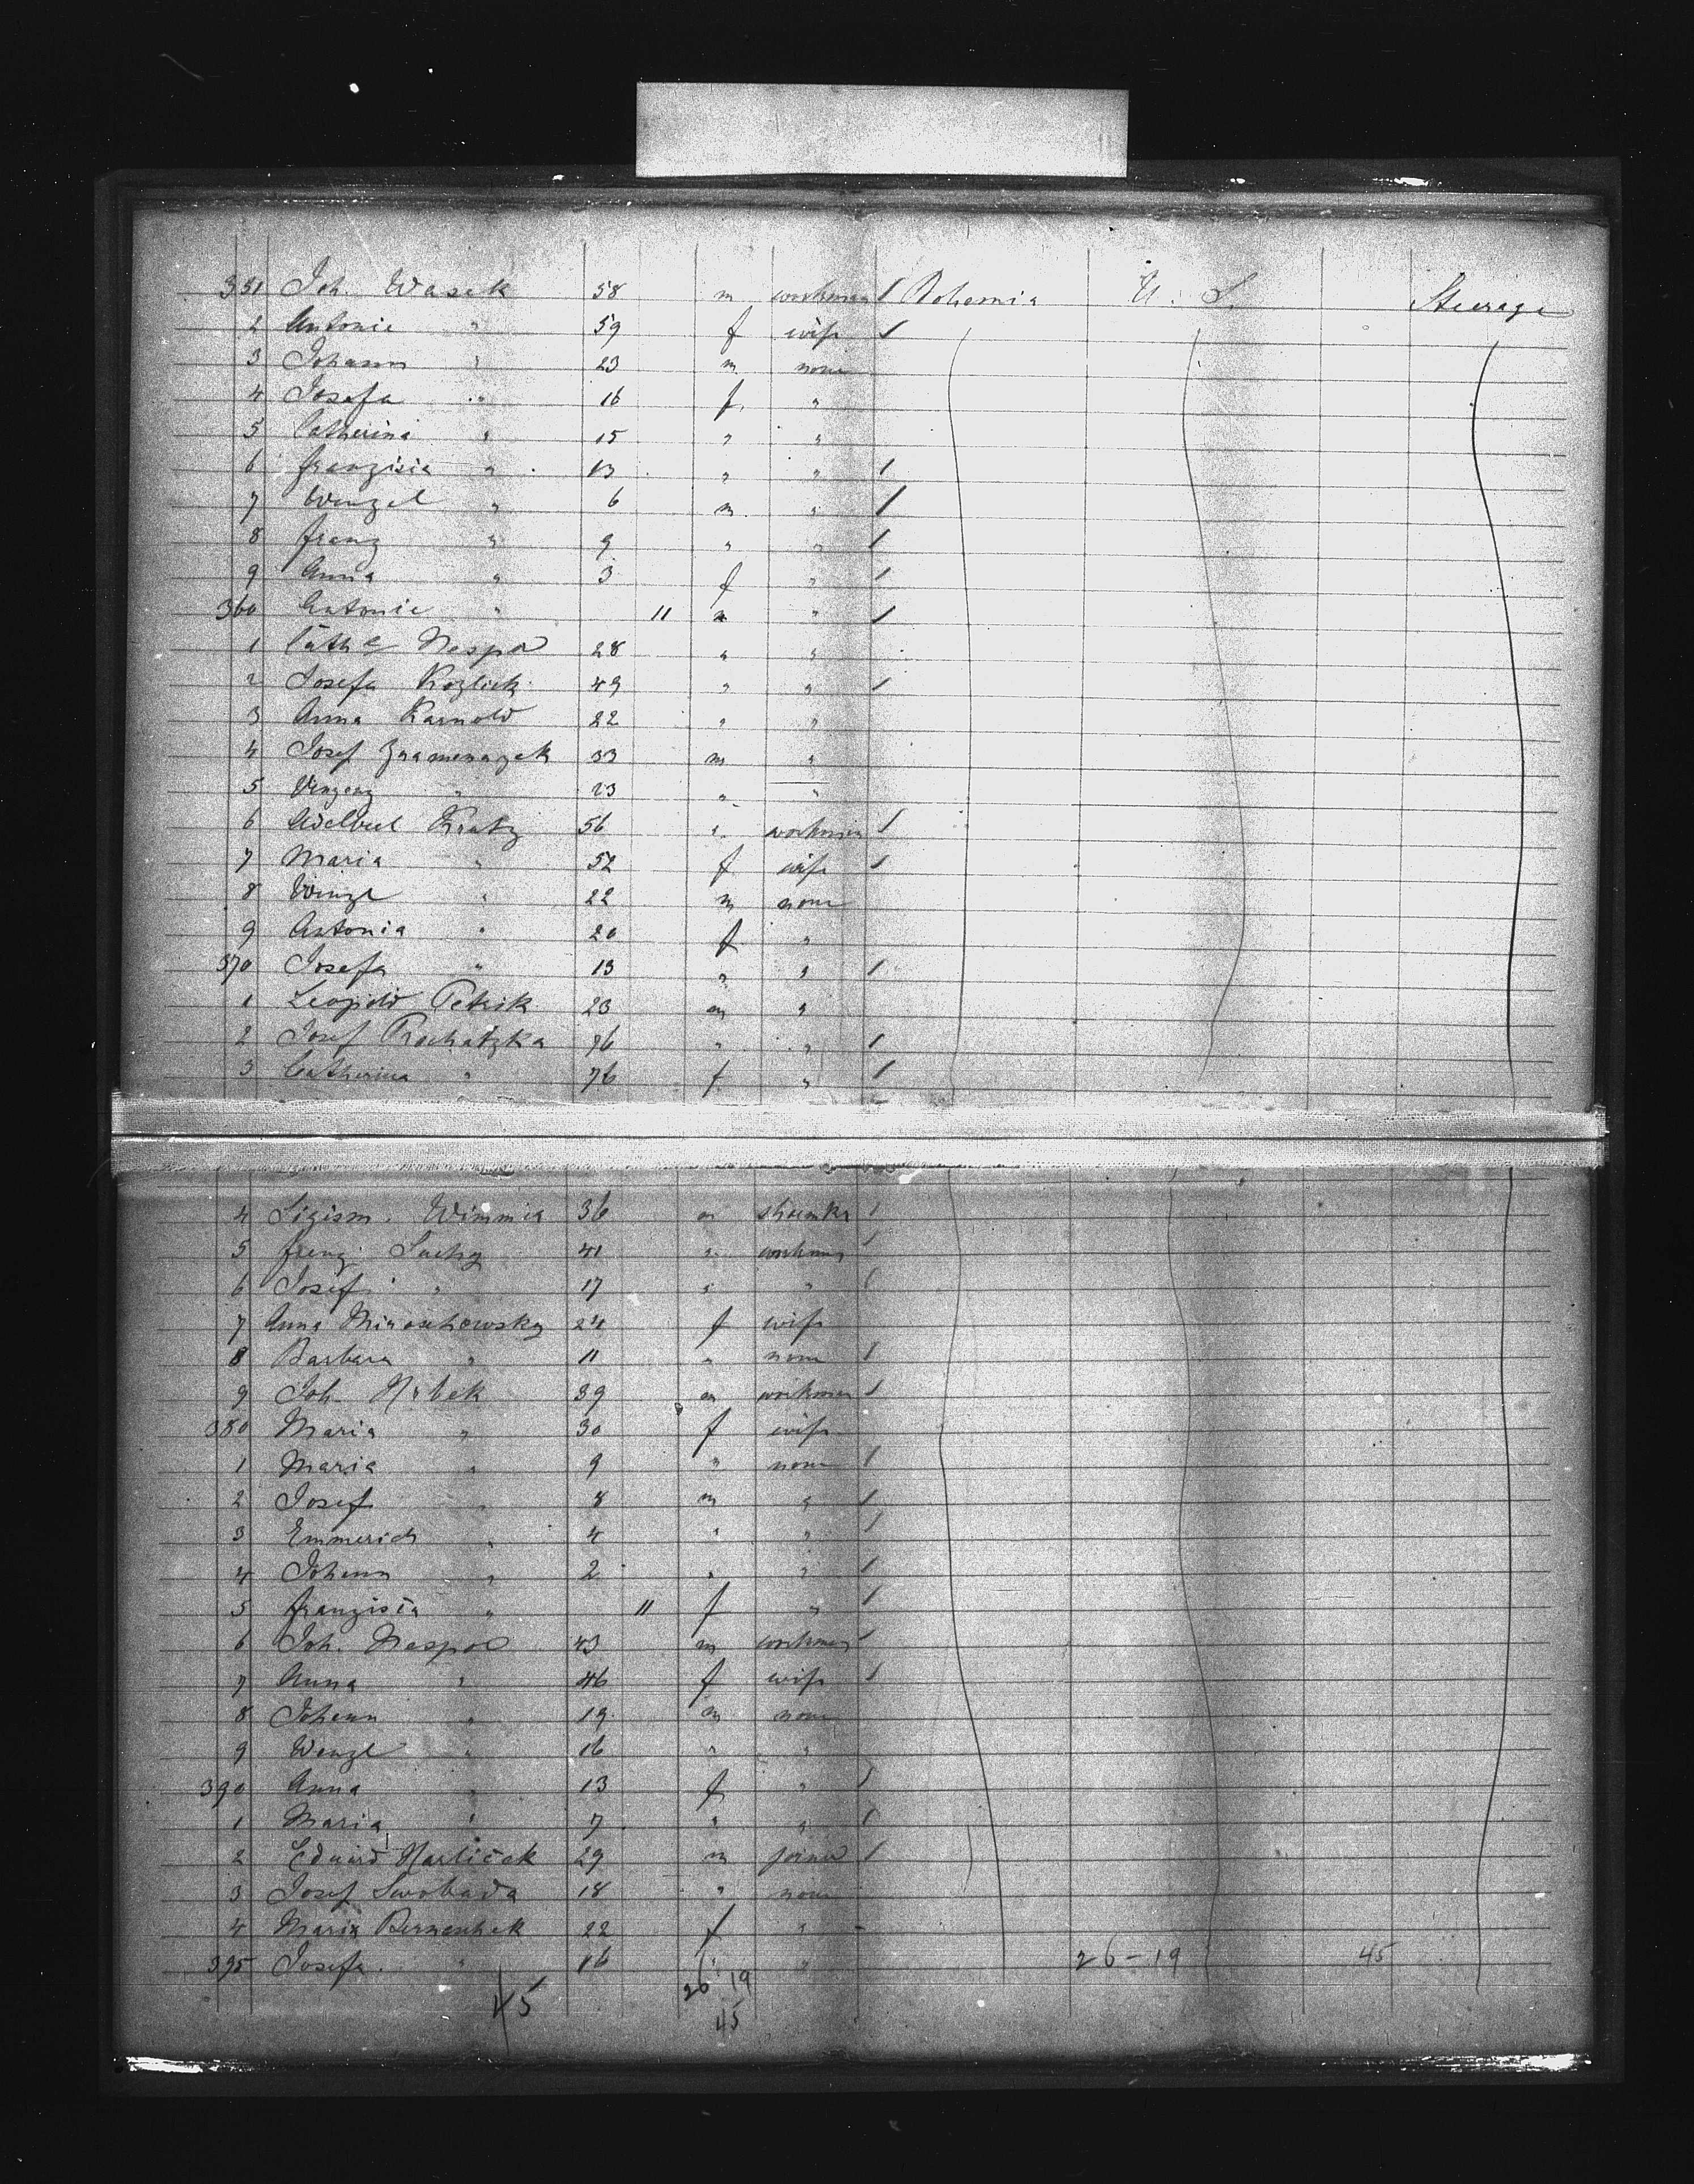 351 Joh. Wasek 58 m workman / Bohemia U. S. Steerage
2 Antonie " 59 f wife /
3 Johann " 23 m none
4 Josefa " 16 f. "
5 Catherina " 15 " "
6 Franzisia " 13 " " /
7 Wenzel " 6 m " /
8 Franz " 9 " " /
9 Anna " 3 f " /
360 Antonie " 11 " /
1 Cath Nespol 28 " "
2 Josefa Kozlick 49 " " /
3 Anna Karnold 22 " "
4 Josef Znamenazek 33 m "
5 Vinzenz " 23 " "
6 Adelbert Kratz 56 " workman /
7 Maria " 52 f wife /
8 Wenzl " 22 m none
9 Antonia " 20 f "
370 Josefa " 13 " " /
1 Leopold Petrik 23 m "
2 Josef Prochatzka 76 " " /
3 Catherina " 76 f " /
4 Sigism. Wimmia 36 m shoemkr /
5 Franz Suchy 41 " workman /
6 Josef " 17 " " /
7 Anna Miroschowsky 24 f wife
8 Barbara " 11 " none /
9 Joh. Hrbek 39 m workman /
380 Maria " 30 f wife
1 Maria " 9 " none /
2 Josef " 8 m " /
3 Emmerich " 4 " " /
4 Johann " 2 " " /
5 Franzisia " 11 f " /
6 Joh. Nespol 43 m workman /
7 Anna " 46 f wife /
8 Johann " 19 m none
9 Wenzl " 16 " "
390 Anna " 13 f " /
1 Maria " 7 " " /
2 Eduard Harlicek 29 m joiner /
3 Josef Swoboda 18 " none
4 Maria Bernaschek 22 f "
395 Josefa " 16 " " 26 - 19 45
45 26 19
45